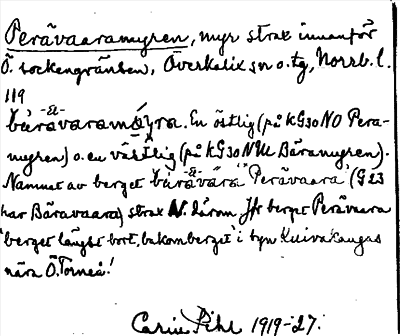 Perävaaramyren, myr strax innanför
Ö. sockengränsen, Överkalix sn o. tg, Norrb. l.
119
En östlig (på KG30NO Perä-
myren) o. en västlig (på KG30NV Bäramyren).
Namnet av berget "Perävaara" (G23
har Bäravaara) strax N. därom Jfr berget Perävaara
'berget längst bort, bakom berget' i byn Kuivakangas
nära Ö. Torneå!
Carin Pihl 1919-27.